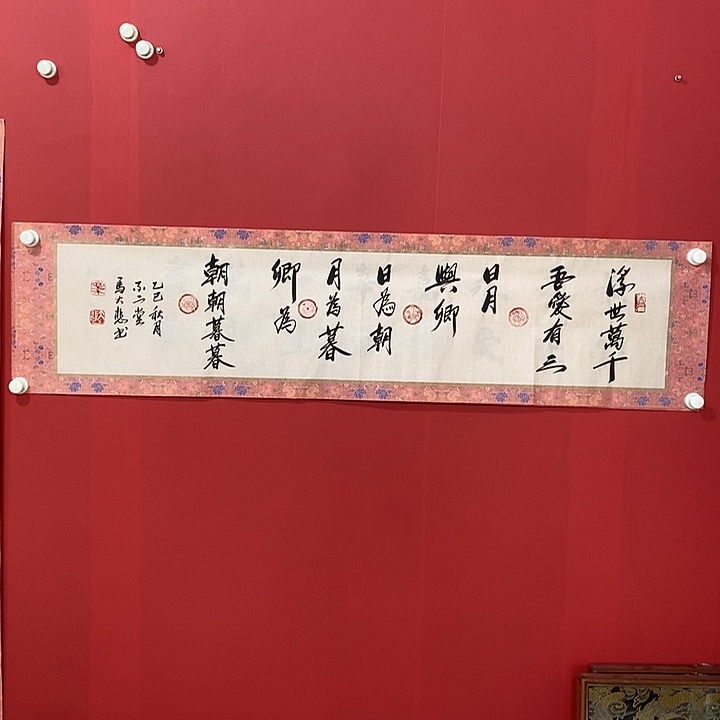 浮世萬千
吾愛有三
日月
與卿
日為朝
月為暮
卿為
朝朝暮暮
乙巳秋月
不二堂
馬大慧书